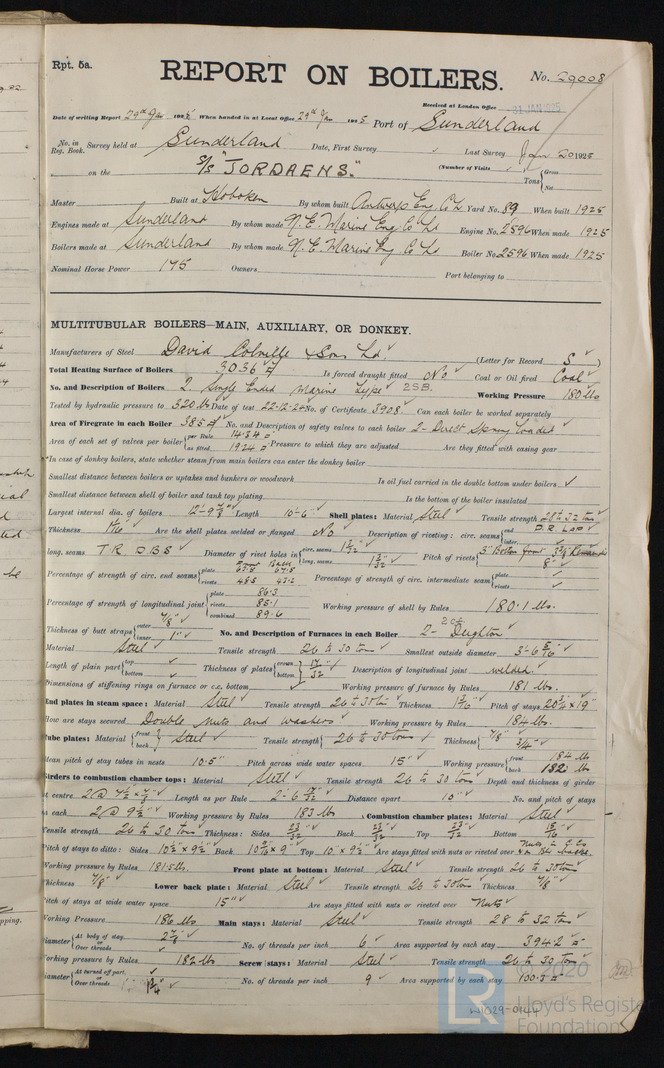 Rpt. 5a.
REPORT ON BOILERS.
No. 29008
Received at London Office 31 JAN 1925
Date of writing Report 29th Jan 1925 When handed in at Local Office 29th Jan 1925 Port of Sunderland
No. in Reg. Book. Survey held at Sunderland Date, First Survey Last Survey Jan 20 1925
on the S/S "JORDAENS." (Number of Visits ) Tons { Gross Net
Master Built at Hoboken By whom built Antwerp Eng Co Ld Yard No. 89 When built 1925
Engines made at Sunderland By whom made N. E. Marine Eng Co Ld Engine No. 2596 When made 1925
Boilers made at Sunderland By whom made N. E. Marine Eng Co Ld Boiler No. 2596 When made 1925
Nominal Horse Power 195 Owners Port belonging to
MULTITUBULAR BOILERS—MAIN, AUXILIARY, OR DONKEY.
Manufacturers of Steel David Colville & Sons Ld (Letter for Record S )
Total Heating Surface of Boilers 3036 Is forced draught fitted No Coal or Oil fired Coal
No. and Description of Boilers 2 Single Ended Marine Type 2SB. Working Pressure 180 lbs
Tested by hydraulic pressure to 320 lbs Date of test 22-12-24 No. of Certificate 3908 Can each boiler be worked separately
Area of Firegrate in each Boiler 38.5 No. and Description of safety valves to each boiler 2 - Direct Spring Loaded
Area of each set of valves per boiler { per Rule 14.34 as fitted 19.24 Pressure to which they are adjusted Are they fitted with easing gear
In case of donkey boilers, state whether steam from main boilers can enter the donkey boiler
Smallest distance between boilers or uptakes and bunkers or woodwork Is oil fuel carried in the double bottom under boilers
Smallest distance between shell of boiler and tank top plating Is the bottom of the boiler insulated
Largest internal dia. of boilers 12'-9 7/8" Length 10'-6" Shell plates: Material Steel Tensile strength 28 to 32 tons
Thickness 1 1/16 Are the shell plates welded or flanged No Description of riveting: circ. seams { end D.R. Lap inter.
long. seams T R D B S Diameter of rivet holes in { circ. seams 1 3/32 long. seams 1 3/32 Pitch of rivets { 8"
Percentage of strength of circ. end seams { plate rivets 48.5 Percentage of strength of circ. intermediate seam { plate rivets
Percentage of strength of longitudinal joint { plate 86.3 rivets 85.1 combined 89.6 Working pressure of shell by Rules 180.1 lbs.
Thickness of butt straps { outer 7/8" inner 1" No. and Description of Furnaces in each Boiler 2 - Deighton
Material Steel Tensile strength 26 to 30 tons Smallest outside diameter 3'-6 5/16"
Length of plain part { top bottom Thickness of plates { crown bottom 17/32 Description of longitudinal joint welded
Dimensions of stiffening rings on furnace or c.c. bottom Working pressure of furnace by Rules 181 lbs.
End plates in steam space: Material Steel Tensile strength 26 to 30 tons Thickness 1 3/16 Pitch of stays 20 1/4 x 19
How are stays secured Double nuts and washers Working pressure by Rules 184 lbs.
Tube plates: Material { front back Steel Tensile strength { 26 to 30 tons Thickness { 7/8" 3/4"
Mean pitch of stay tubes in nests 10.5" Pitch across wide water spaces 15" Working pressure { front 184 lbs back 182 lbs
Girders to combustion chamber tops: Material Steel Tensile strength 26 to 30 tons Depth and thickness of girder
at centre 2 @ 7 1/2 x 7/8 Length as per Rule 2'-6 9/32 Distance apart 10" No. and pitch of stays
in each 2 @ 9 1/2" Working pressure by Rules 183 lbs Combustion chamber plates: Material Steel
Tensile strength 26 to 30 tons Thickness: Sides 23/32 Back 23/32 Top 23/32 Bottom 15/16
Pitch of stays to ditto: Sides 10 1/2 x 9 1/2 Back 10 x 9" Top 10 x 9 1/2" Are stays fitted with nuts or riveted over Nuts in C.Cs
Working pressure by Rules 181.5 lbs. Front plate at bottom: Material Steel Tensile strength 26 to 30 tons
Thickness 7/8" Lower back plate: Material Steel Tensile strength 26 to 30 tons Thickness 7/8"
Pitch of stays at wide water space 15" Are stays fitted with nuts or riveted over Nuts
Working Pressure 186 lbs Main stays: Material Steel Tensile strength 28 to 32 tons
Diameter { At body of stay, or Over threads 2 7/8" No. of threads per inch 6 Area supported by each stay 394.2
Working pressure by Rules 182 lbs Screw stays: Material Steel Tensile strength 26 to 30 tons
Diameter { At turned off part, or Over threads 1 3/4" No. of threads per inch 9 Area supported by each stay 100.3
© 2020
Lloyd's Register
Foundation
W1029-0144